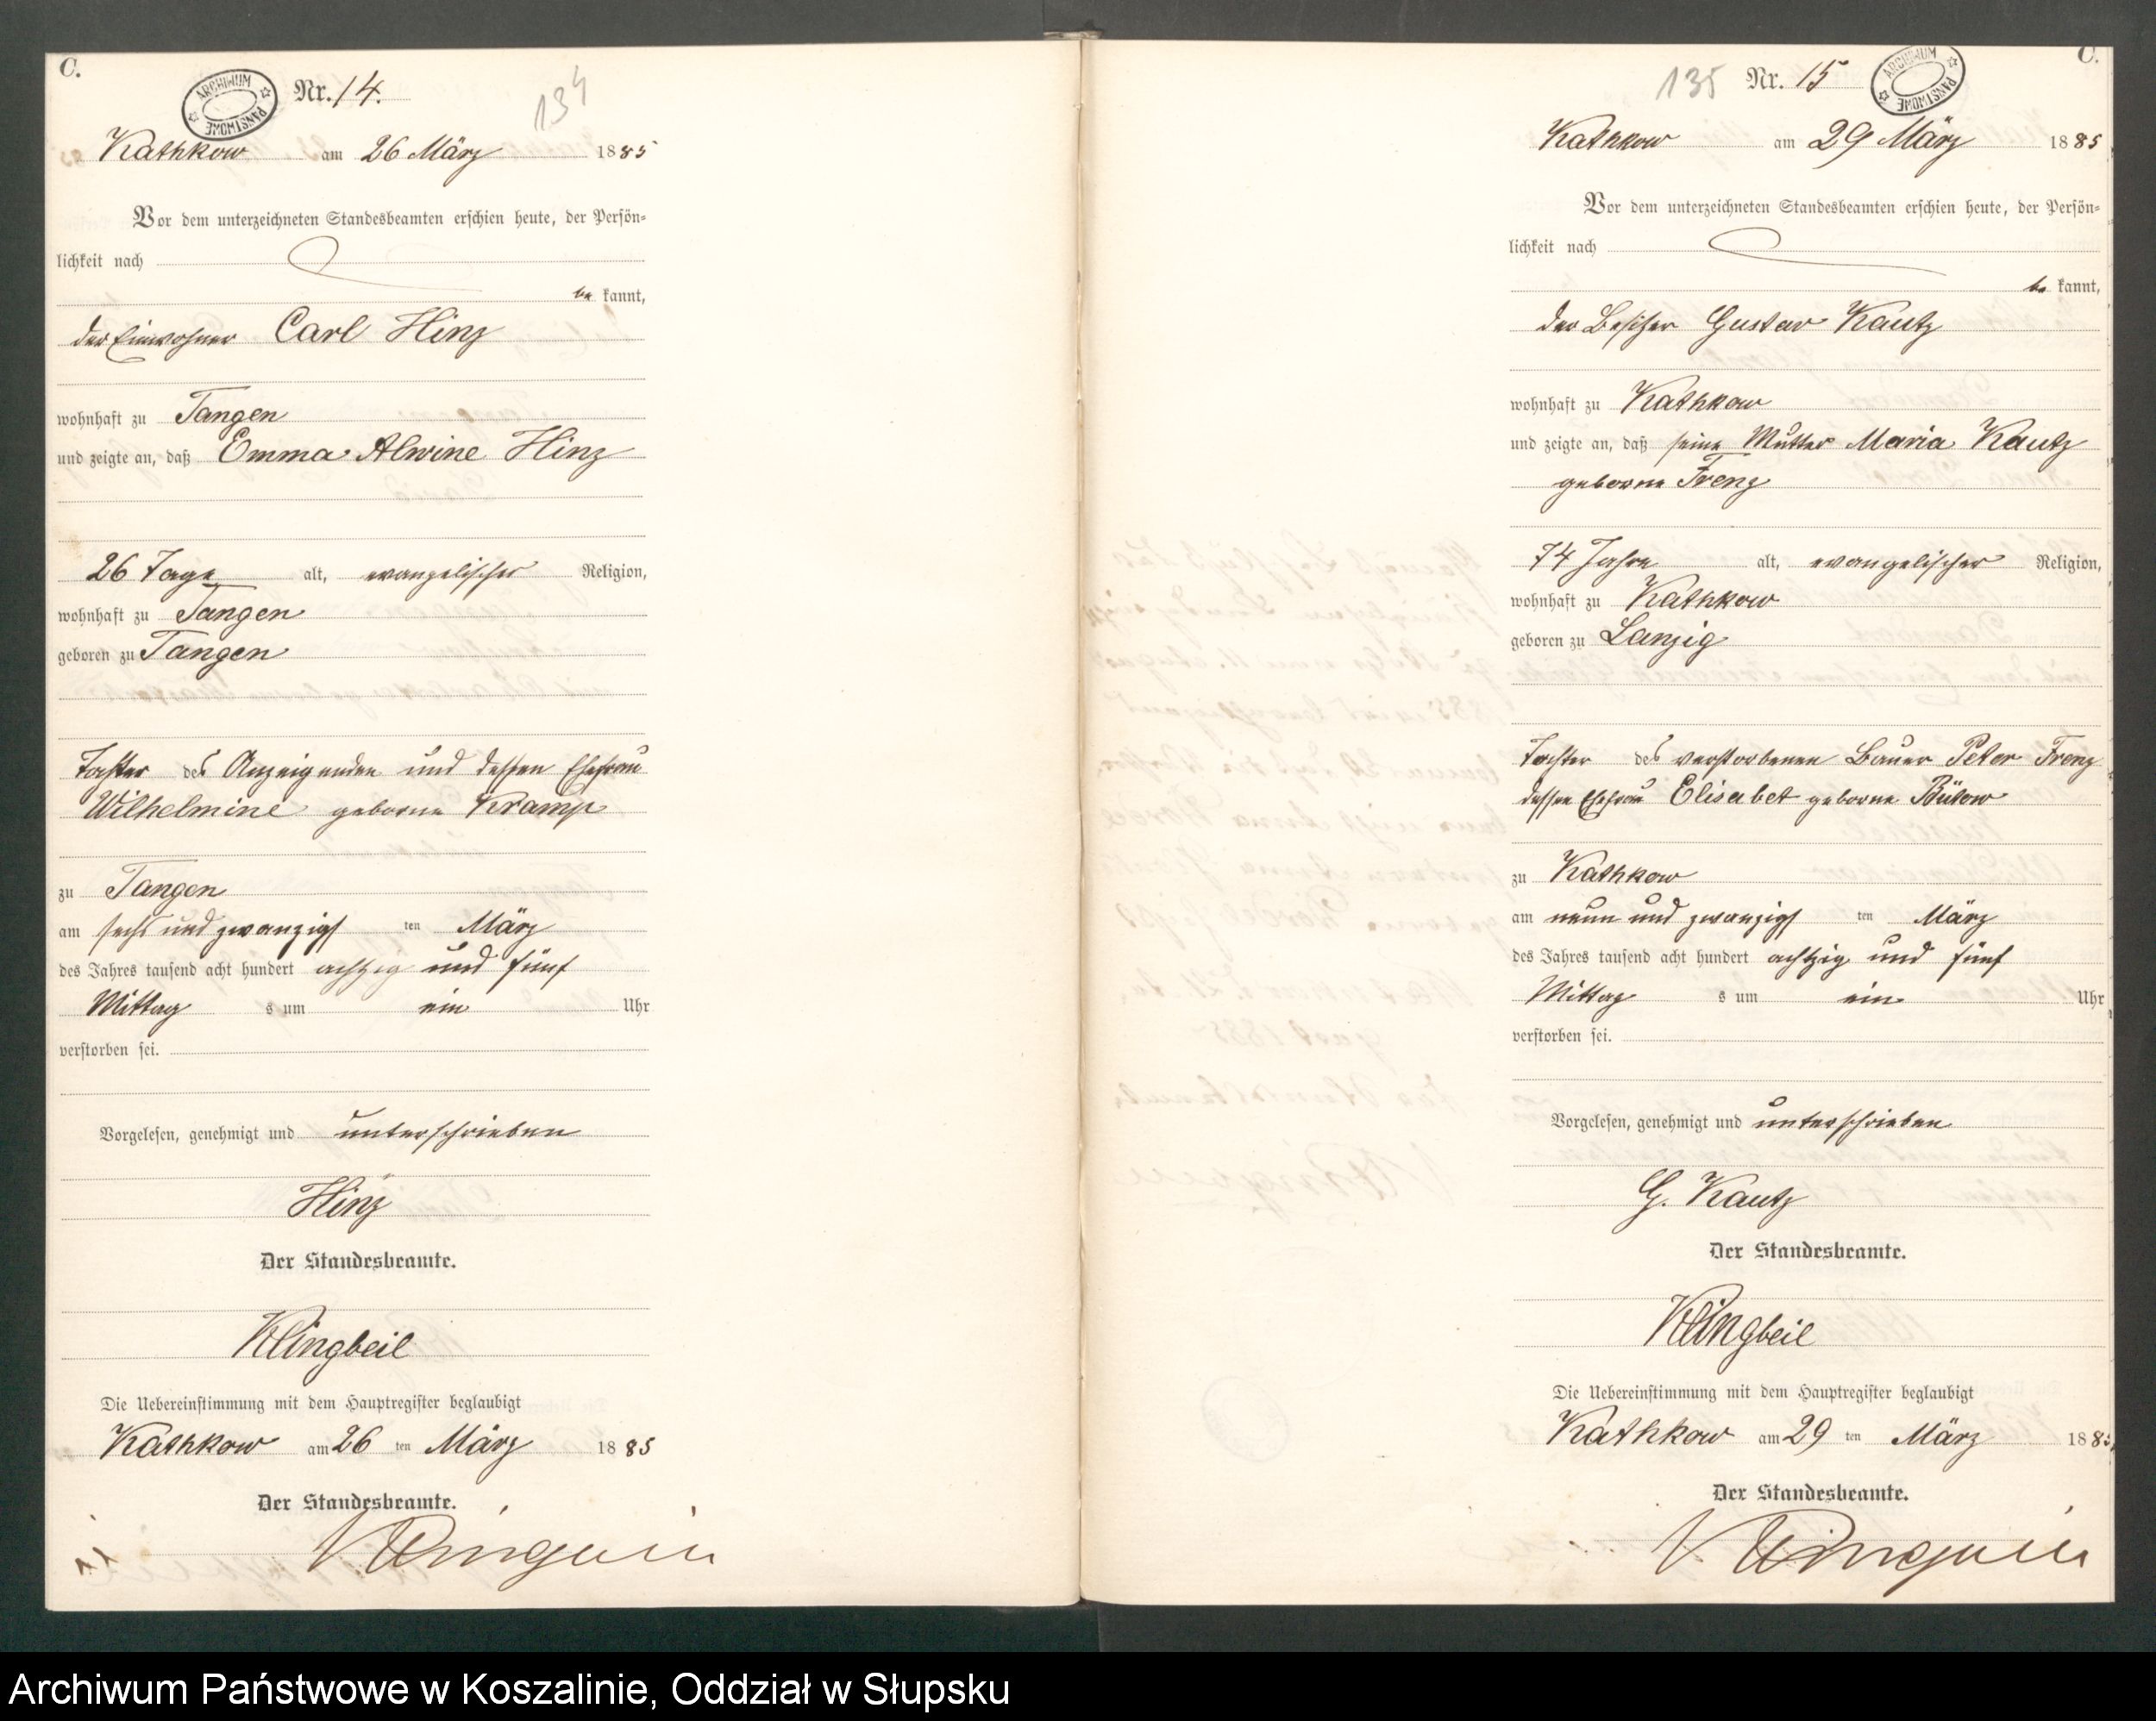 C.
ARCHIWUM PAŃSTWOWE
Nr. 14.
134
Kathkow am 26 März 1885
Vor dem unterzeichneten Standesbeamten erschien heute, der Persön=
lichkeit nach
be kannt,
der Einwohner Carl Hinz
wohnhaft zu Tangen
und zeigte an, daß Emma Alwine Hinz
26 Tage alt, evangelischer Religion,
wohnhaft zu Tangen
geboren zu Tangen
Tochter des Anzeigenden und dessen Ehefrau
Wilhelmine geborne Kramp
zu Tangen
am sechs und zwanzigsten März
des Jahres tausend acht hundert achtzig und fünf
Mittag s um ein Uhr
verstorben sei.
Vorgelesen, genehmigt und unterschrieben
Hinz
Der Standesbeamte.
Klingbeil
Die Uebereinstimmung mit dem Hauptregister beglaubigt
Kathkow am 26 ten März 1885
Der Standesbeamte.
Klingbeil
C.
135
Nr. 15
ARCHIWUM PAŃSTWOWE
Kathkow am 29 März 1885
Vor dem unterzeichneten Standesbeamten erschien heute, der Persön=
lichkeit nach
be kannt,
der Besitzer Gustav Kautz
wohnhaft zu Kathkow
und zeigte an, daß seine Mutter Maria Kautz
geborne Frenz
74 Jahre alt, evangelischer Religion,
wohnhaft zu Kathkow
geboren zu Lanzig
Tochter des verstorbenen Bauer Peter Frenz
dessen Ehefrau Elisabet geborne Bütow
zu Kathkow
am neun und zwanzigsten März
des Jahres tausend acht hundert achtzig und fünf
Mittag s um ein Uhr
verstorben sei.
Vorgelesen, genehmigt und unterschrieben
G. Kautz
Der Standesbeamte.
Klingbeil
Die Uebereinstimmung mit dem Hauptregister beglaubigt
Kathkow am 29 ten März 1885
Der Standesbeamte.
Klingbeil
Archiwum Państwowe w Koszalinie, Oddział w Słupsku